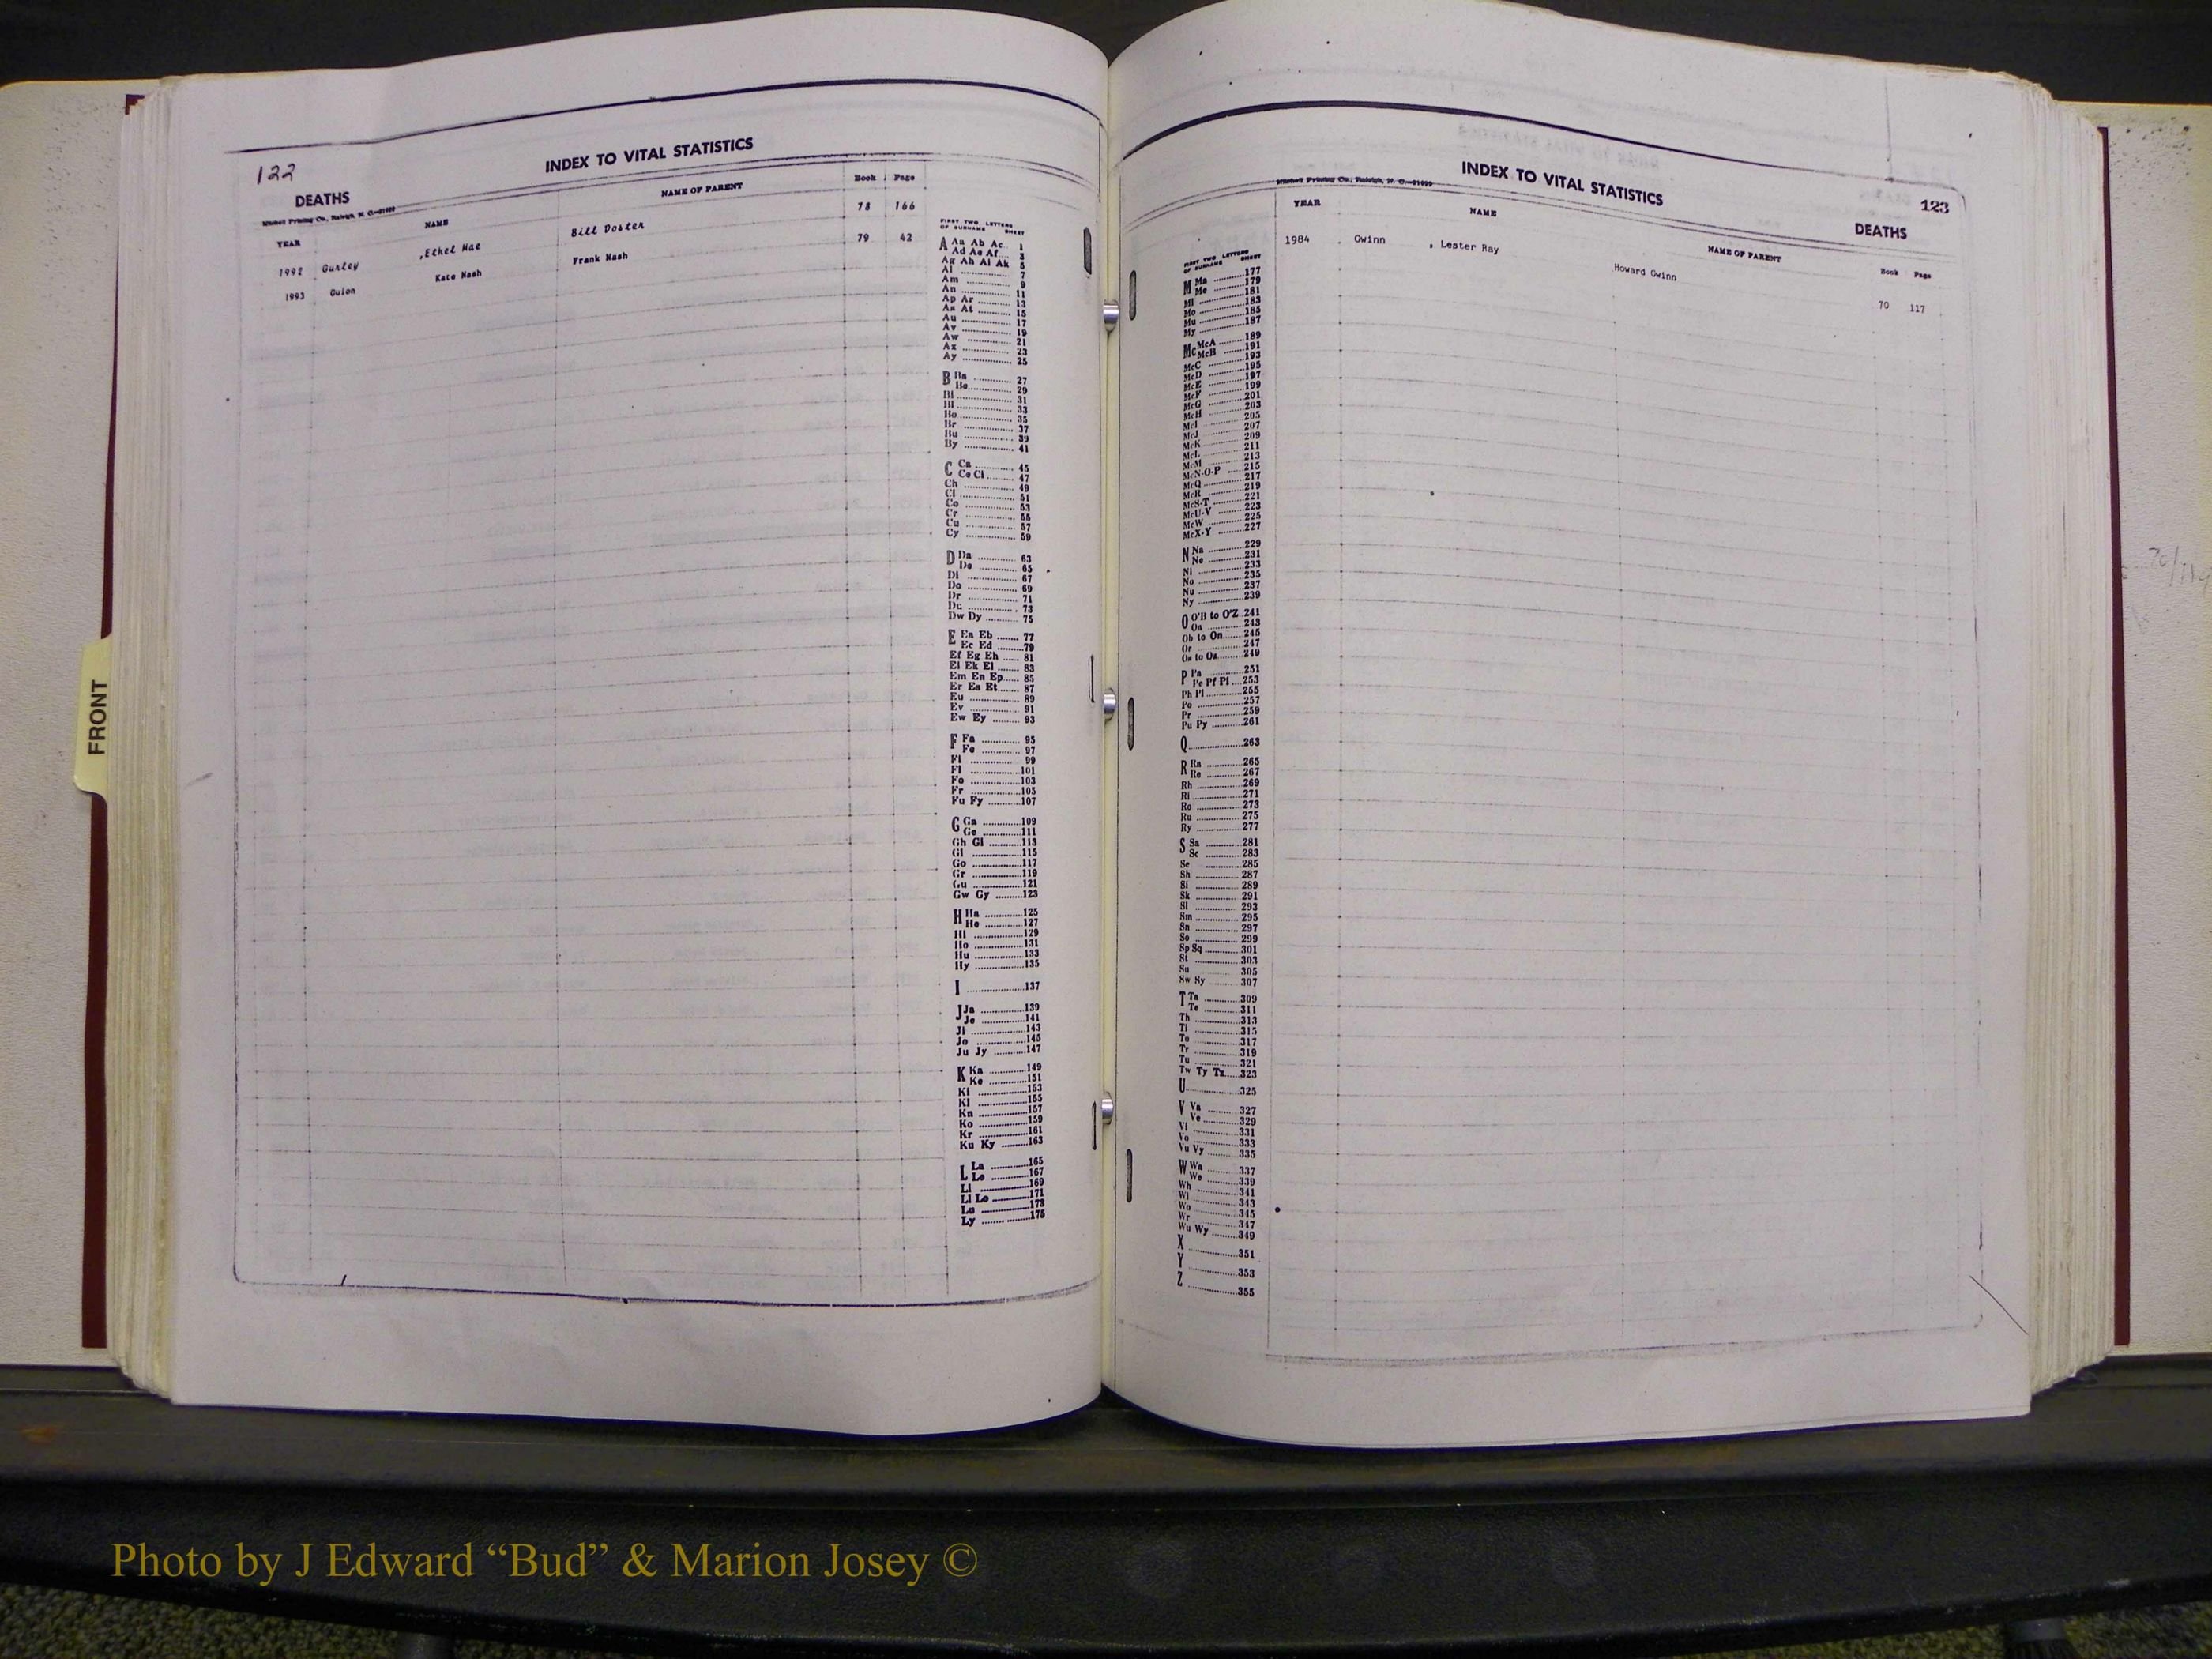 122
INDEX TO VITAL STATISTICS
DEATHS
Mitchell Printing Co., Raleigh, N. C.
YEAR NAME NAME OF PARENT Book Page
1992 Gurley ,Ethel Mae Bill Doster 78 166
1993 Guion Kate Nash Frank Nash 79 42
FIRST TWO LETTERS
OF SURNAME SHEET
A Aa Ab Ac 1
Ad Ae Af 3
Ag Ah Ai Ak 5
Al 7
Am 9
An 11
Ap Ar 13
As At 15
Au 17
Av 19
Aw 21
Ax 23
Ay 25
B Ba 27
Be 29
Bi 31
Bl 33
Bo 35
Br 37
Bu 39
By 41
C Ca 45
Ce Ci 47
Ch 49
Cl 51
Co 53
Cr 55
Cu 57
Cy 59
D Da 63
De 65
Di 67
Do 69
Dr 71
Du 73
Dw Dy 75
E Ea Eb 77
Ec Ed 79
Ef Eg Eh 81
Ei Ek El 83
Em En Ep 85
Er Es Et 87
Eu 89
Ev 91
Ew Ey 93
F Fa 95
Fe 97
Fi 99
Fl 101
Fo 103
Fr 105
Fu Fy 107
G Ga 109
Ge 111
Gh Gi 113
Gl 115
Go 117
Gr 119
Gu 121
Gw Gy 123
H Ha 125
He 127
Hi 129
Ho 131
Hu 133
Hy 135
I 137
J Ja 139
Je 141
Ji 143
Jo 145
Ju Jy 147
K Ka 149
Ke 151
Ki 153
Kl 155
Kn 157
Ko 159
Kr 161
Ku Ky 163
L La 165
Le 167
Li 169
Ll Lo 171
Lu 173
Ly 175
FRONT
INDEX TO VITAL STATISTICS
123
Mitchell Printing Co., Raleigh, N. C.
DEATHS
YEAR NAME NAME OF PARENT Book Page
1984 Gwinn , Lester Ray Howard Gwinn 70 117
FIRST TWO LETTERS
OF SURNAME SHEET
M Ma 177
Me 179
Mi 181
Mo 183
Mu 185
My 187
Mc McA 189
McB 191
McC 193
McD 195
McE 197
McF 199
McG 201
McH 203
McI 205
McJ 207
McK 209
McL 211
McM 213
McN-O-P 215
McQ 217
McR 219
McS-T 221
McU-V 223
McW 225
McX-Y 227
N Na 229
Ne 231
Ni 233
No 235
Nu 237
Ny 239
O O'B to O'Z 241
Oa 243
Ob to On 245
Or 247
Os to Oz 249
P Pa 251
Pe Pf Pi 253
Ph Pl 255
Po 257
Pr 259
Pu Py 261
Q 263
R Ra 265
Re 267
Rh 269
Ri 271
Ro 273
Ru 275
Ry 277
S Sa 281
Sc 283
Se 285
Sh 287
Si 289
Sk 291
Sl 293
Sm 295
Sn 297
So 299
Sp Sq 301
St 303
Su 305
Sw Sy 307
T Ta 309
Te 311
Th 313
Ti 315
To 317
Tr 319
Tu 321
Tw Ty Tz 323
U 325
V Va 327
Ve 329
Vi 331
Vo 333
Vu Vy 335
W Wa 337
We 339
Wh 341
Wi 343
Wo 345
Wr 347
Wu Wy 349
X 351
Y 353
Z 355
Photo by J Edward “Bud” & Marion Josey ©